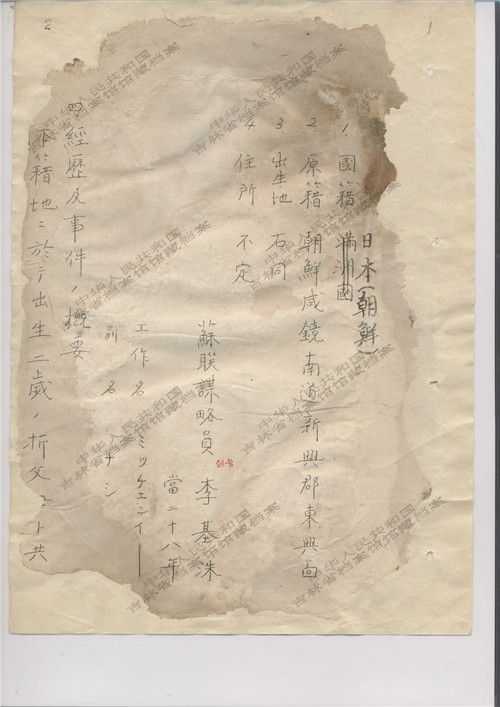 1
日本(朝鮮)
1. 國籍 満洲國
2. 原籍 朝鮮咸鏡南道新興郡東興面
3. 出生地 右同
4. 住所 不定
蘇聯謀略員 李基洙
當二十八年
工作名 ミツケエンイー
別名 ナシ
2
四、經歴及事件ノ概要
本籍地ニ於テ出生二歳ノ折父ト共
中华人民共和国
吉林省档案馆馆藏档案